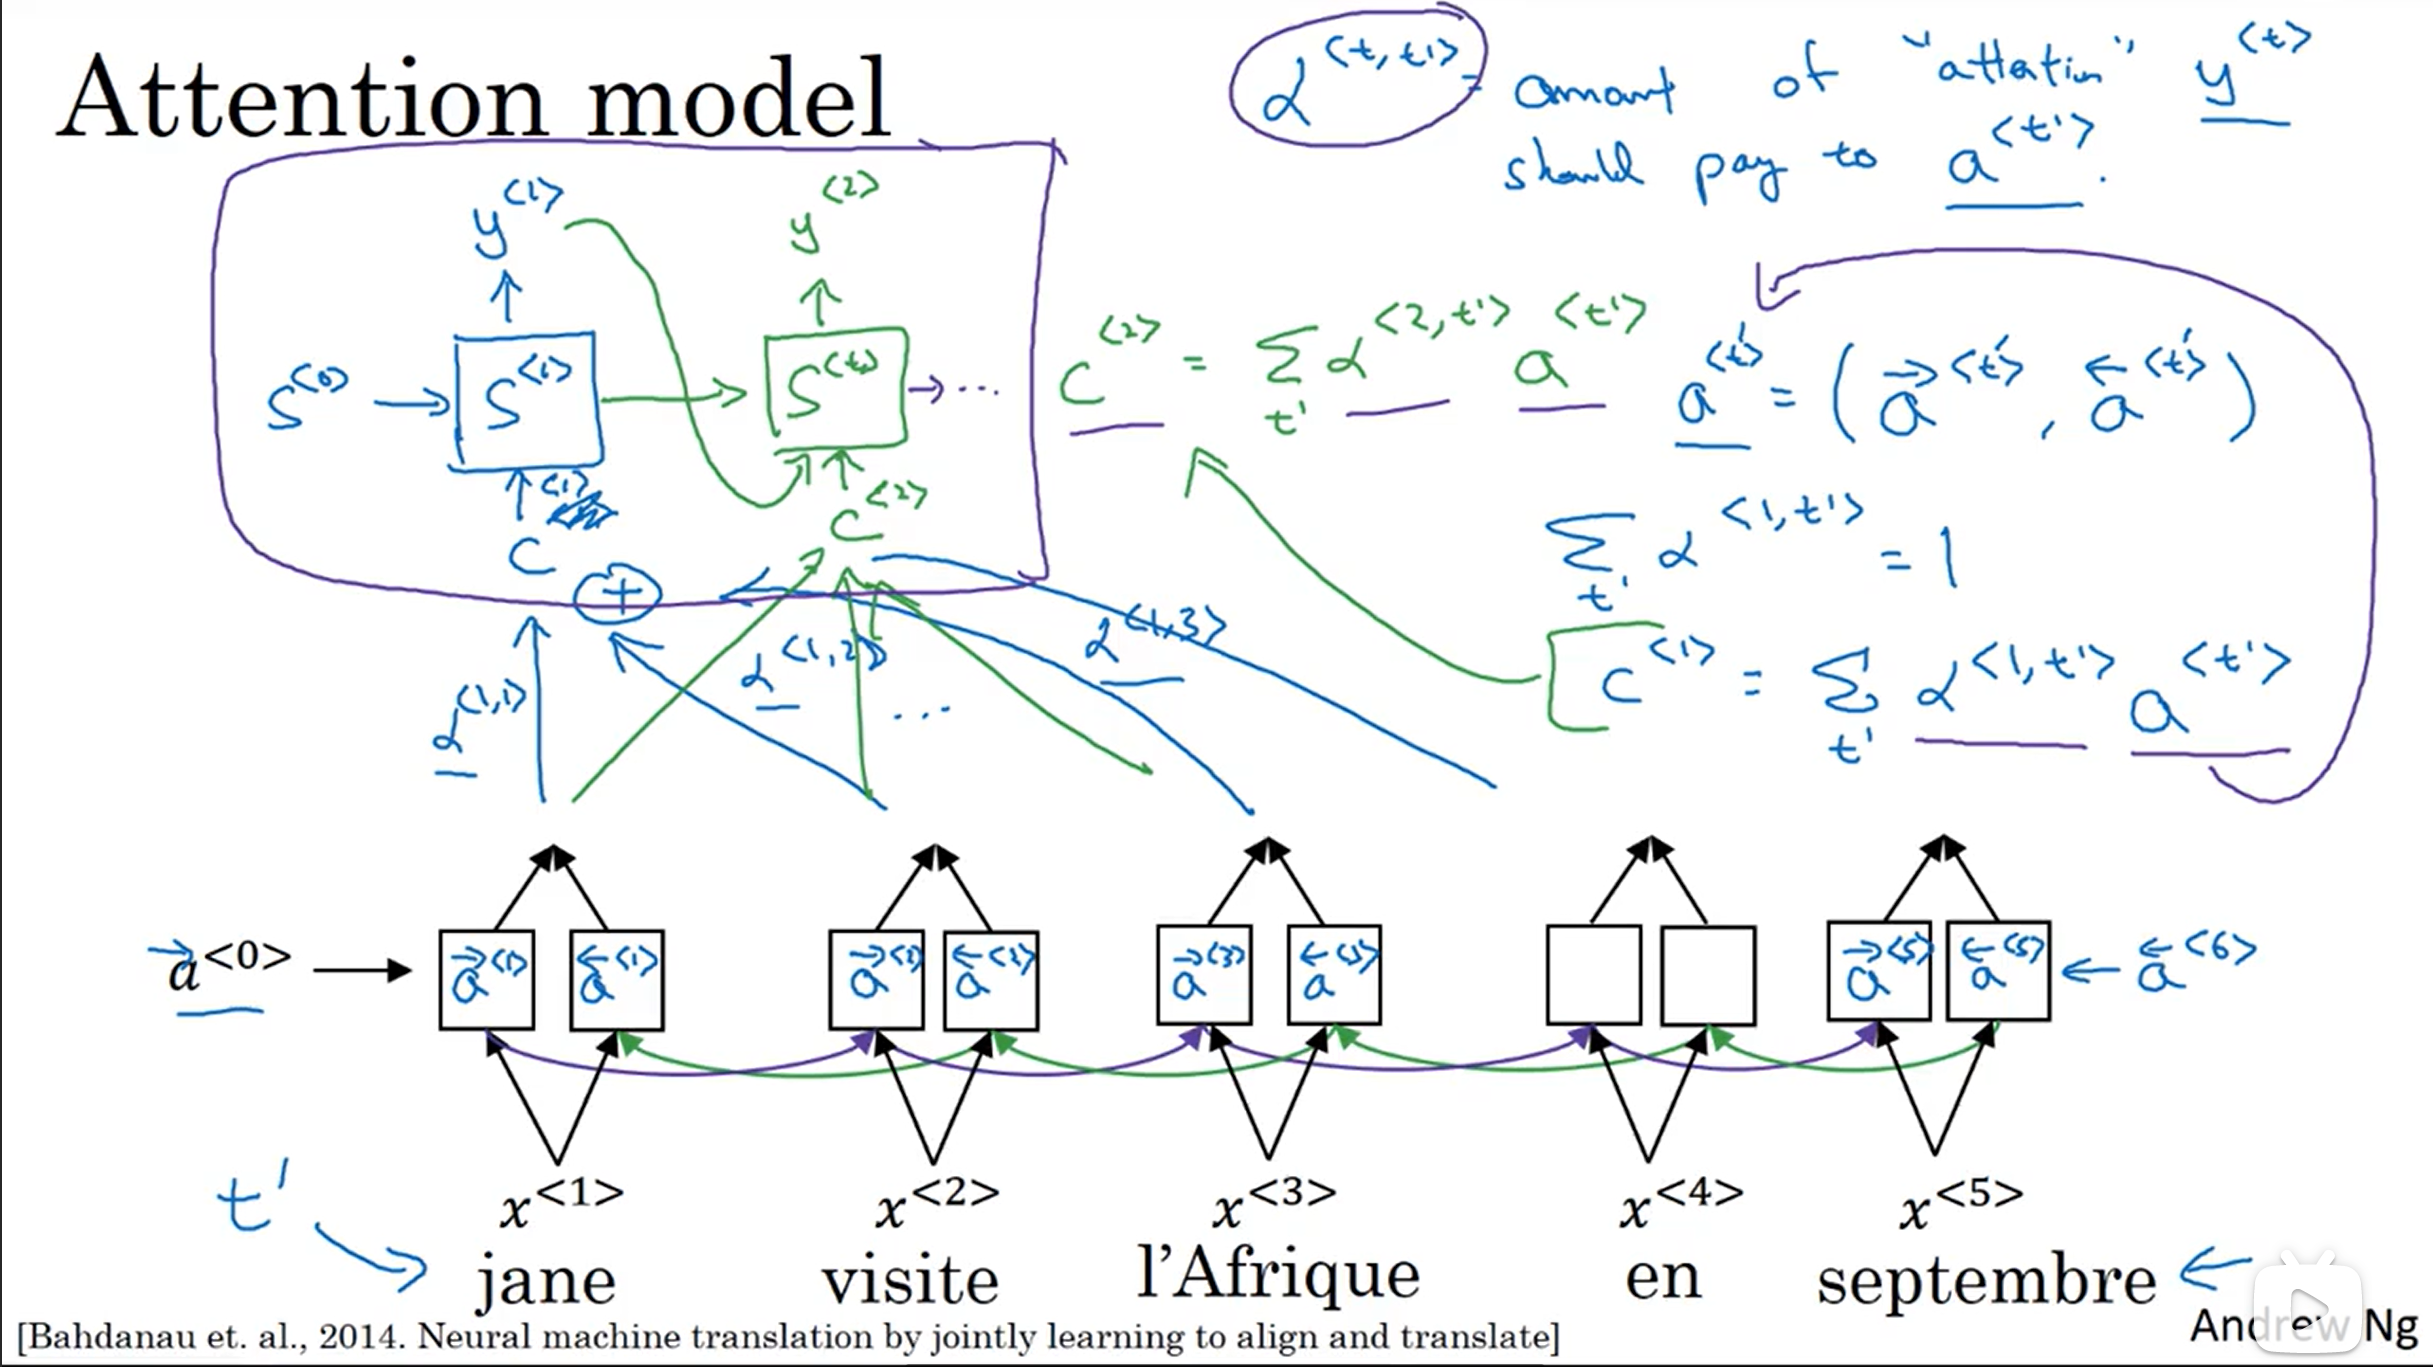 Attention model
α<t,t'> = amount of "attention" y<t>
should pay to a<t'>.
y<1> y<2>
S<0> → S<1> → S<t> → ...
C<2> = Σt' α<2,t'> a<t'>
a<t'> = (→a<t'>, ←a<t'>)
C<1> C<2>
+
Σt' α<1,t'> = 1
α<1,1> α<1,2> ... α<1,3>
C<1> = Σt' α<1,t'> a<t'>
→a<0> → →a<1> ←a<1> →a<2> ←a<2> →a<3> ←a<3> →a<5> ←a<5> ← ←a<6>
t' x<1> x<2> x<3> x<4> x<5>
jane visite l'Afrique en septembre ←
[Bahdanau et. al., 2014. Neural machine translation by jointly learning to align and translate]
Andrew Ng